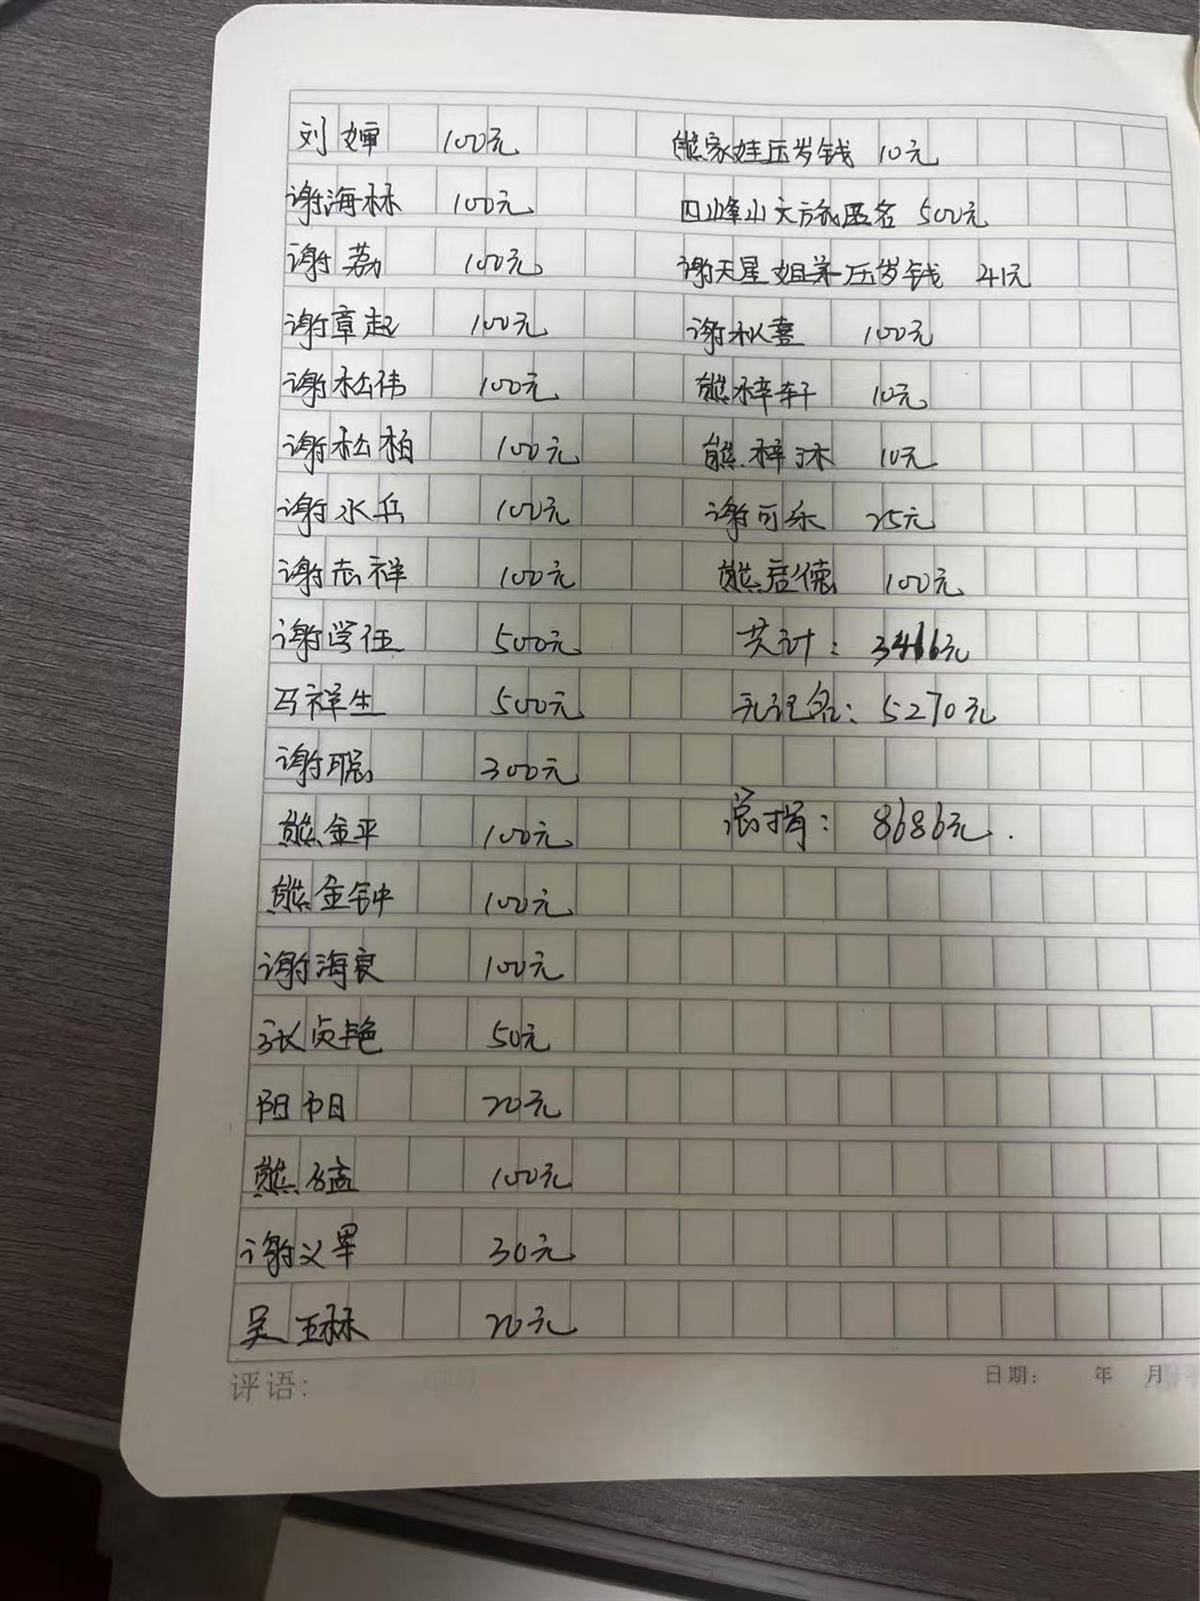 刘婵 100元
谢海林 100元
谢荔 100元
谢章起 100元
谢松伟 100元
谢松柏 100元
谢水兵 100元
谢志祥 100元
谢学伍 500元
马祥生 500元
谢聪 300元
熊金平 100元
熊金钟 100元
谢海良 100元
张贞艳 50元
阳 20元
熊猛 100元
谢义军 30元
吴玉林 20元
熊家娃压岁钱 10元
四峰山大方氏匿名 500元
谢天星姐弟压岁钱 41元
谢秋喜 100元
熊梓轩 10元
熊梓沐 10元
谢可乐 25元
熊彦德 100元
共计: 3416元
无记名: 5270元
总捐: 8686元.
评语:
日期: 年 月